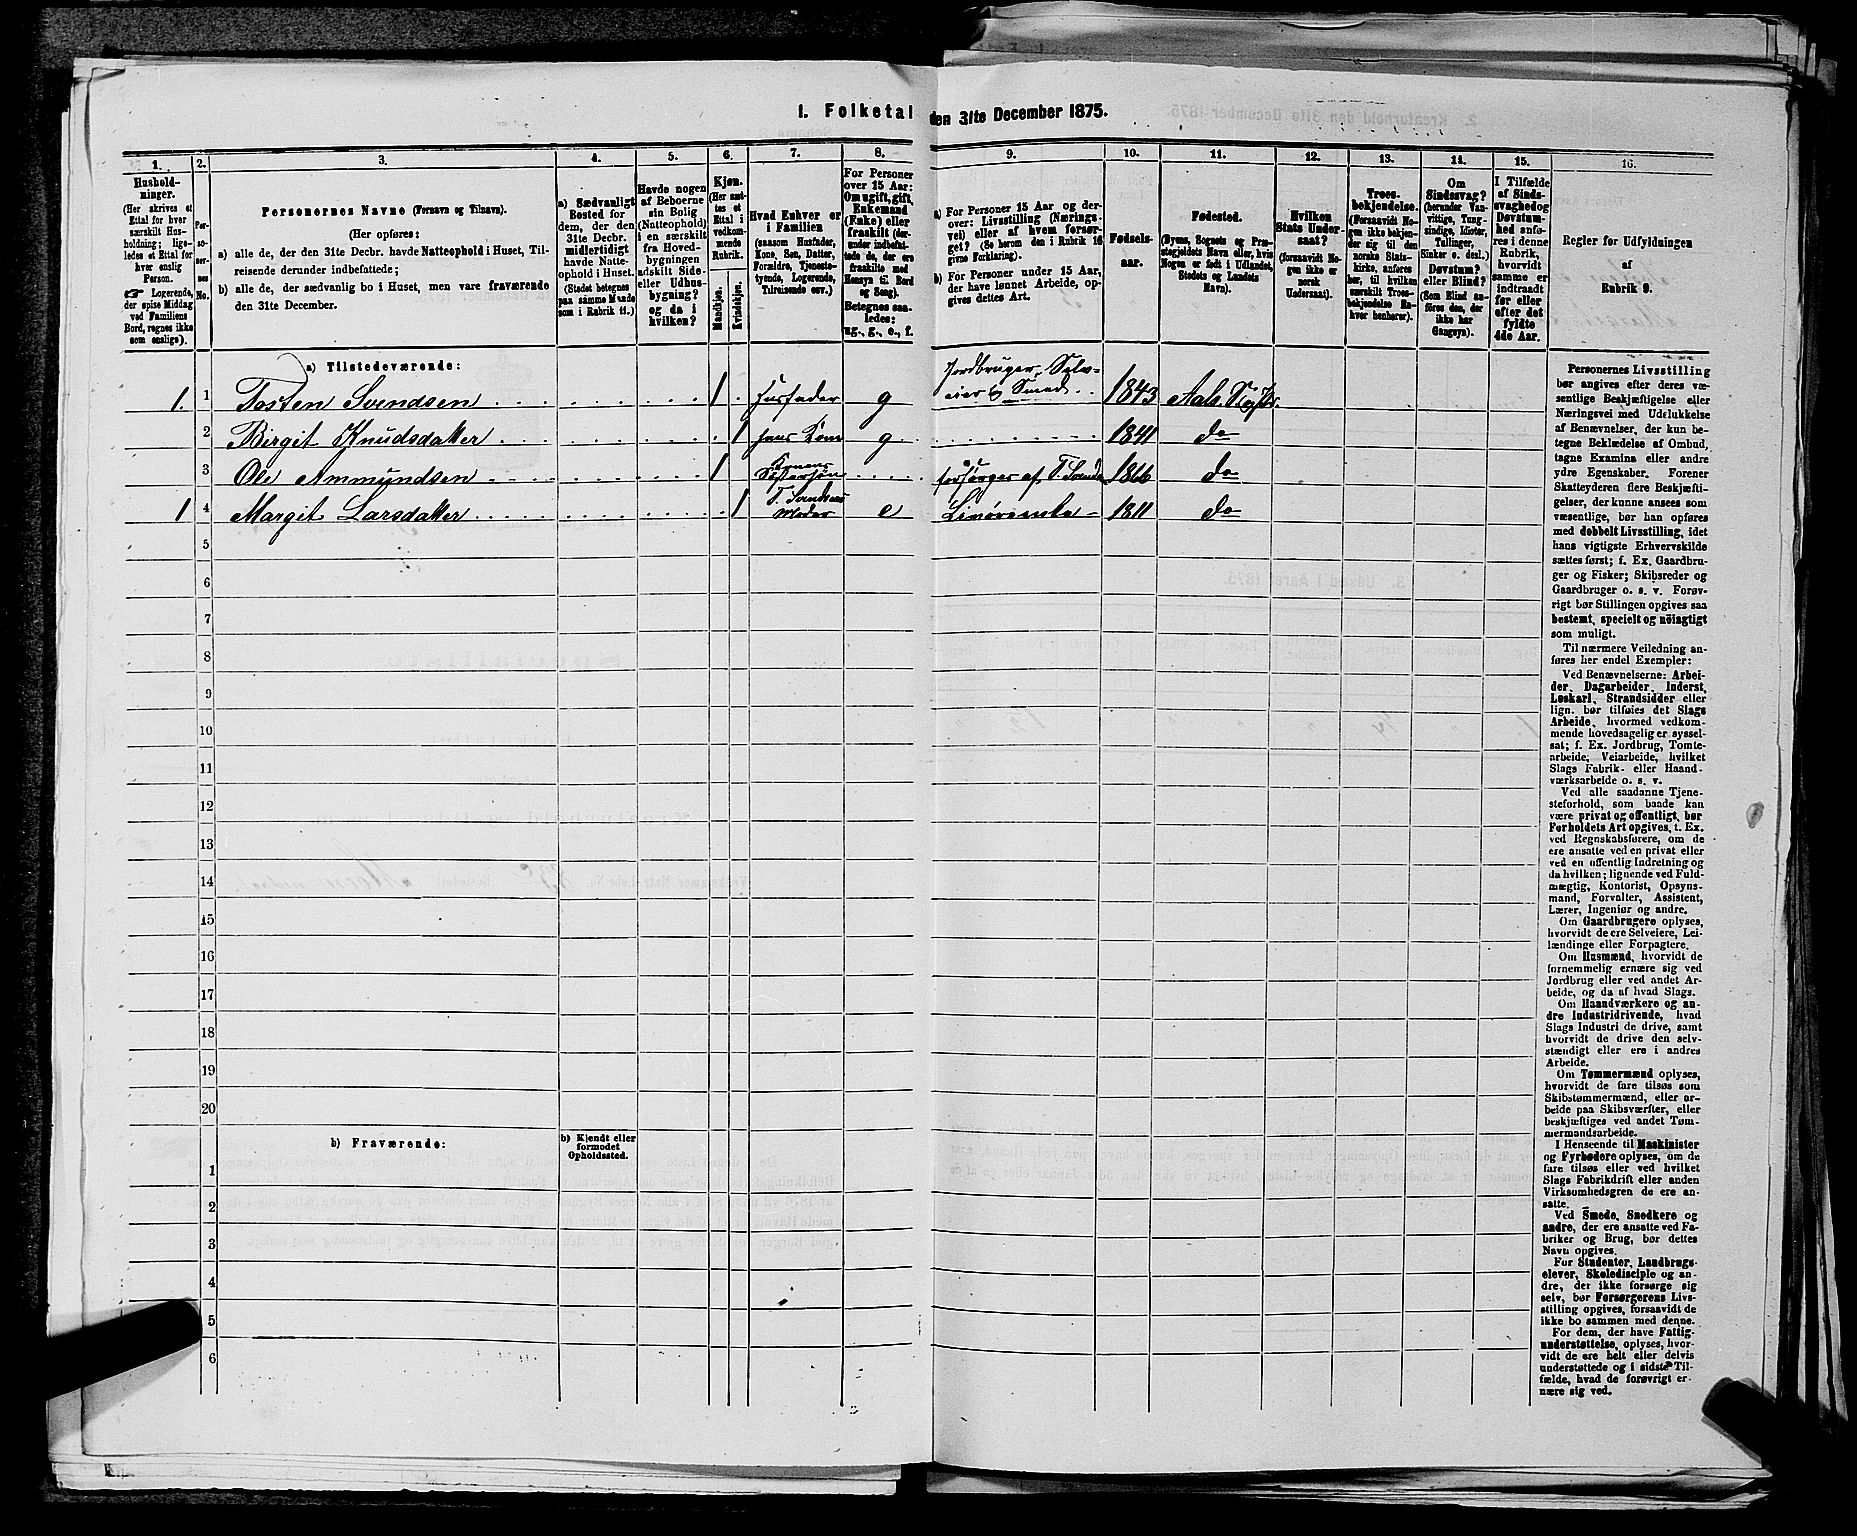 1. Folketal den 31te December 1875.
1.
Hushold-
ninger.
(Her skrives et
Ettal for hver
særskilt Hus-
holdning; lige-
ledes et Ettal for
hver enslig
Person.
☞ Logerende,
der spise Middag
ved Familiens
Bord, regnes ikke
som enslige).
2.
Per-
so-
ner-
nes
No.
3.
Personernes Navne (Fornavn og Tilnavn).
(Her opføres:
a) alle de, der den 31te Decbr. havde Natteophold i Huset, Til-
reisende derunder indbefattede;
b) alle de, der sædvanlig bo i Huset, men vare fraværende
den 31te December.
4.
a) Sædvanligt
Bosted for
dem, der den
31te Decbr.
midlertidigt
havde Natte-
ophold i Huset.
(Stedet betegnes
paa samme Maade
som i Rubrik 11.)
5.
Havde nogen
af Beboerne
sin Bolig
(Natteophold)
i en særskilt
fra Hoved-
bygningen
adskilt Side-
eller Udhus-
bygning?
og da i
hvilken?
6.
Kjøn.
(Her sæt-
tes et
Ettal i
vedkom-
mende
Rubrik.
Mandkjøn.
Kvindekjøn.
7.
Hvad Enhver er
i Familien
(saasom Husfader,
Kone, Søn, Datter,
Forældre, Tjeneste-
tyende, Logerende,
Tilreisende osv.)
8.
For Personer
over 15 Aar:
Om ugift, gift,
Enkemand
(Enke) eller
fraskilt (der-
under indbefat-
tede de, der ere
fraskilte med
Hensyn til Bord
og Seng).
Betegnes saa-
ledes:
ug., g., e., f.
9.
a) For Personer 15 Aar og der-
over: Livsstilling (Nærings-
vei) eller af hvem forsør-
get? (Se herom den i Rubrik 16
givne Forklaring).
b) For Personer under 15 Aar,
der have lønnet Arbeide, op-
gives dettes Art.
10.
Fødsels-
aar.
11.
Fødested.
(Byens, Sognets og Præ-
stegjeldets Navn eller, hvis
Nogen er født i Udlandet,
Stedets og Landets
Navn).
12.
Hvilken
Stats Under-
saat?
(forsaavidt No-
gen ikke er
norsk
Undersaat).
13.
Troes-
bekjendelse.
(Forsaavidt No-
gen ikke bekjen-
der sig til den
norske Stats-
kirke, anføres
her, til hvilken
særskilt Troes-
bekjendelse En-
hver henhører).
14.
Om
Sindssvag?
(herunder Van-
vittige, Tung-
sindige, Idioter,
Tullinger,
Sinker o. desl.)
Døvstum?
eller Blind?
(Som Blind an-
føres den, der
ikke har
Gangsyn).
15.
I Tilfælde
af Sinds-
svaghed og
Døvstum-
hed anfø-
res i denne
Rubrik,
hvorvidt
samme er
indtraadt
før eller
efter det
fyldte
4de Aar.
16.
Regler for Udfyldningen
af
Rubrik 9.
a) Tilstedeværende:
1. 1 Tosten Svendsen 1 Husfader g Jordbruger, Selv-
eier & Smed 1843 Aals
2 Birgit Knudsdatter 1 hans Kone g 1841 do
3 Ole Ammundsen 1 Konens
Søstersøn forsørges af T. Svends 1866 do
1 4 Margit Larsdatter 1 T. Svendsens
Moder e 1811 do
5
6
7
8
9
10
11
12
13
14
15
16
17
18
19
20
b) Fraværende:
b) Kjendt eller
formodet
Opholdssted.
1
2
3
4
5
6
Personernes Livsstilling
bør angives efter deres væ-
sentlige Beskjæftigelse eller
Næringsvei med Udelukkelse
af Benævnelser, der kun be-
tegne Beklædelse af Ombud,
tagne Examina eller andre
ydre Egenskaber. Forener
Skatteyderen flere Beskjæfti-
gelser, der kunne ansees som
væsentlige, bør han opføres
med dobbelt Livsstilling, idet
hans vigtigste Erhvervskilde
sættes først; f. Ex. Gaardbru-
ger og Fisker; Skibsreder og
Gaardbruger o. s. v. Forøv-
rigt bør Stillingen opgives saa
bestemt, specielt og nøiagtigt
som muligt.
Til nærmere Veiledning an-
føres her endel Exempler:
Ved Benævnelserne: Arbei-
der, Dagarbeider, Inderst,
Løskarl, Strandsidder eller
lign. bør tilføies det Slags
Arbeide, hvormed vedkom-
mende hovedsagelig er syssel-
sat; f. Ex. Jordbrug, Tomte-
arbeide, Veiarbeide, hvilket
Slags Fabrik- eller Haand-
værksarbeide o. s. v.
Ved alle saadanne Tjene-
steforhold, som baade kan
være privat og offentligt, bør
Forholdets Art opgives, t. Ex.
ved Regnskabsførere, om de
ere ansatte ved en privat eller
ved en offentlig Indretning og
da hvilken; lignende ved Fuld-
mægtig, Kontorist, Opsyns-
mand, Forvalter, Assistent,
Lærer, Ingeniør og andre.
Om Gaardbrugere oplyses,
hvorvidt de ere Selveiere, Lei-
lændinge eller Forpagtere.
Om Husmænd, hvorvidt de
fornemmelig ernære sig ved
Jordbrug eller ved andet Ar-
beide, og da af hvad Slags.
Om Haandværkere og an-
dre Industridrivende, hvad
Slags Industri de drive, samt
hvorvidt de drive den selv-
stændigt eller ere i andres
Arbeide.
Om Tømmermænd oplyses,
hvorvidt de fare tilsøs som
Skibstømmermænd, eller ar-
beide paa Skibsværfter, eller
beskjæftiges ved andet Tøm-
mermandsarbeide.
I Henseende til Maskinister
og Fyrbødere oplyses, om de
fare tilsøs eller ved hvilket
Slags Fabrikdrift eller anden
Virksomhedsgren de ere an-
satte.
Ved Smede, Snedkere og
andre, der ere ansatte ved Fa-
briker og Brug, bør dettes
Navn opgives.
For Studenter, Landbrugs-
elever, Skoledisciple og an-
dre, der ikke forsørge sig
selv, bør Forsørgerens Livs-
stilling opgives, forsaavidt de
ikke bo sammen med denne.
For dem, der have Fattig-
understøttelse, oplyses, hvor-
vidt de ere helt eller delvis
understøttede og i sidste Til-
fælde, hvad de forøvrigt er-
nære sig ved.